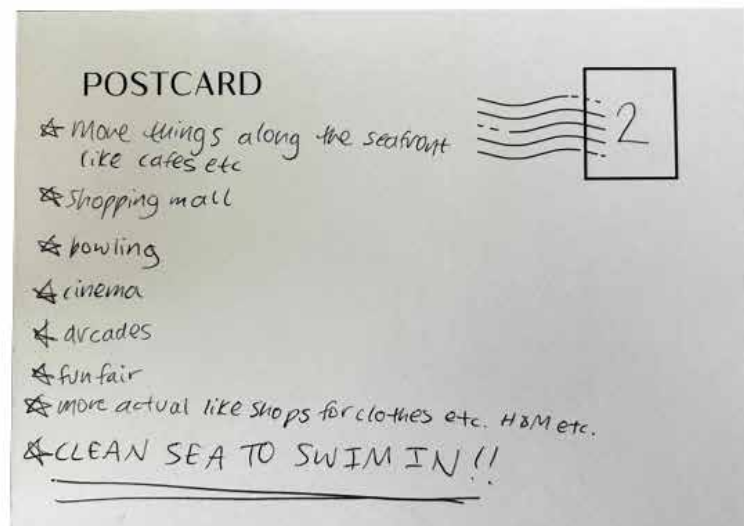 POSTCARD
2
☆ More things along the seafront
like cafes etc
☆ Shopping mall
☆ bowling
☆ cinema
☆ arcades
☆ fun fair
☆ more actual like shops for clothes etc. H&M etc.
☆ CLEAN SEA TO SWIM IN!!